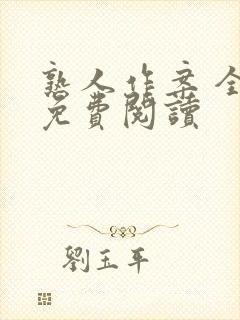 熟人作案全
免費閱讀
劉玉平